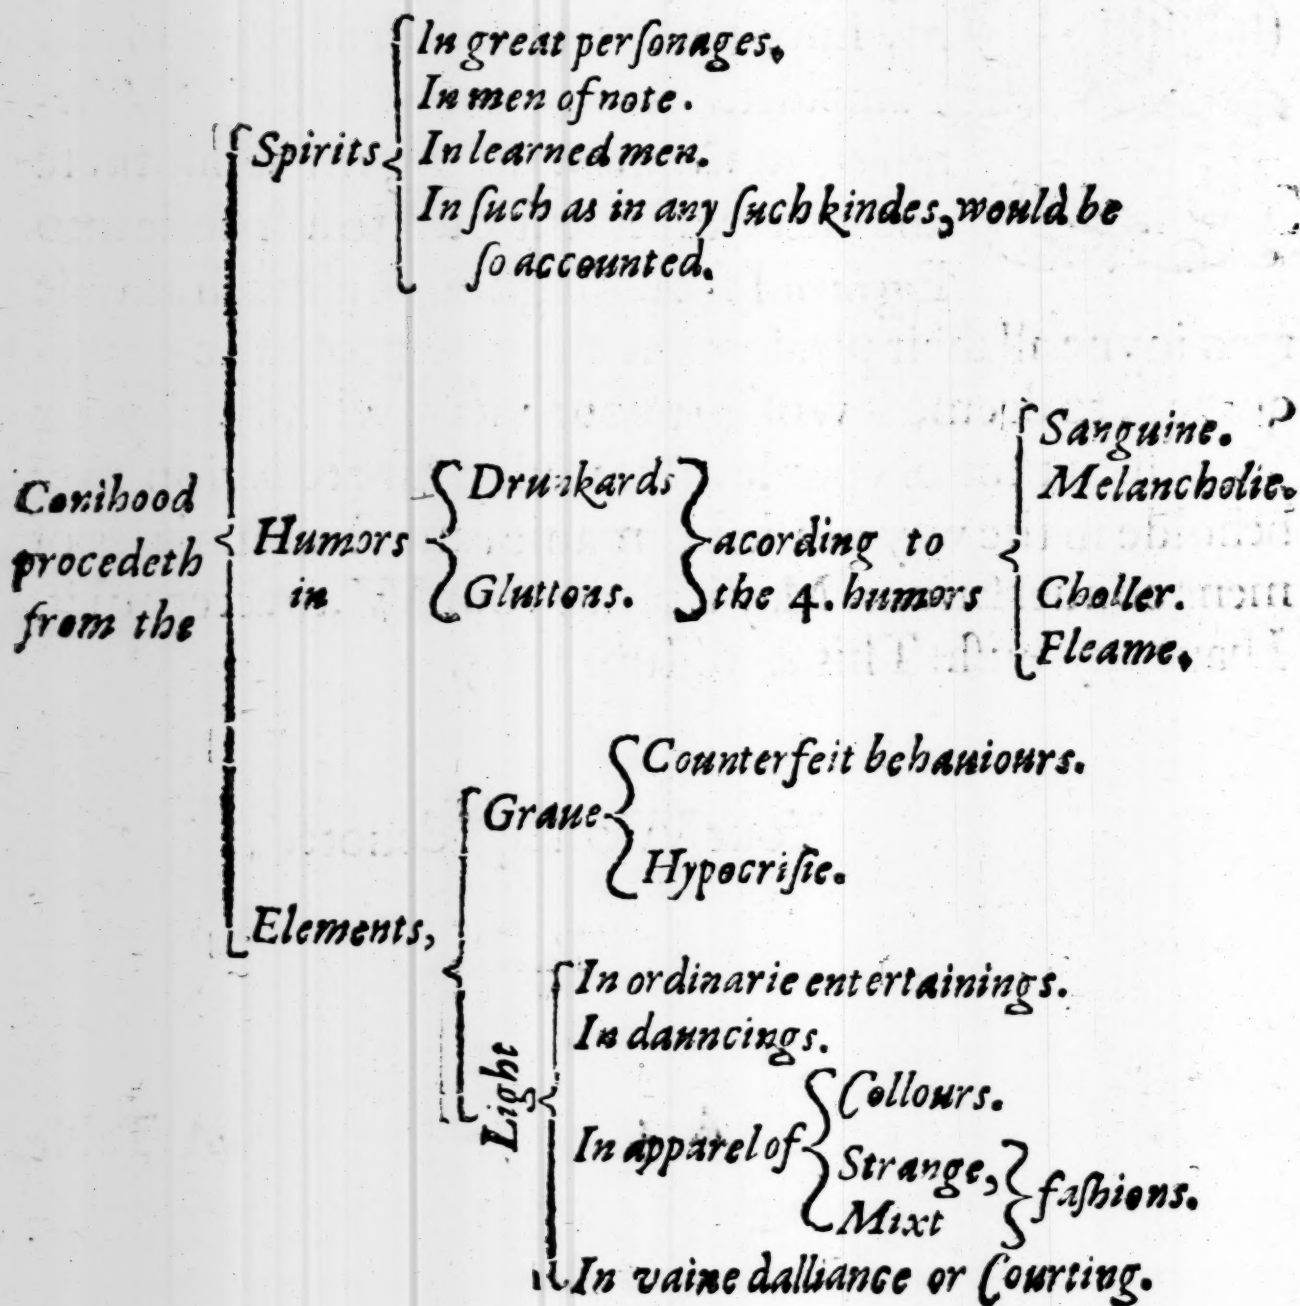 In great perſonages.
In men of note.
Spirits
In learned men.
In ſuch as in any ſuch kindes, would be
ſo accounted.
Conihood
procedeth
from the
Humors
in
Drunkards
Gluttons.
acording to
the 4. humors
Sanguine.
Melancholie.
Choller.
Fleame.
Elements,
Graue
Counterfeit behauiours.
Hypocriſie.
Light
In ordinarie entertainings.
In dauncings.
In apparel of
Collours.
Strange,
Mixt
faſhions.
In vaine dalliance or Courting.